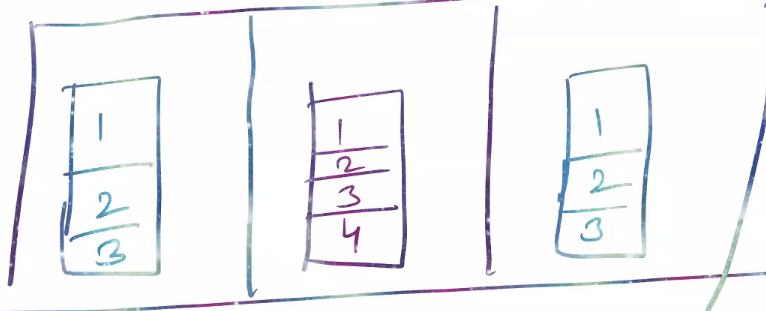 1
2
3
1
2
3
4
1
2
3